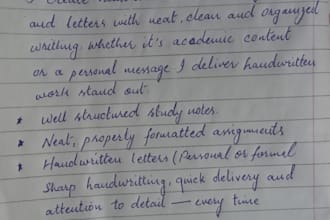 and letters with neat, clean and organized
writing whether it's academic content
or a personal message I deliver handwritten
work stand out
* Well structured study notes.
* Neat, properly formatted assignments
* Handwritten letters (Personal or formel
Sharp handwritting, quick delivery and
attention to detail — every time